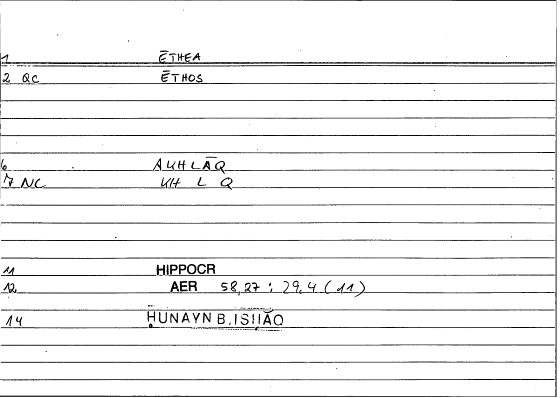 1 ĒTHEA
2 QC ĒTHOS
6 AKHLĀQ
7 NC KH L Q
11 HIPPOCR
12 AER 58,27 : 29,4 (11)
14 ḤUNAYN B. ISḤĀQ